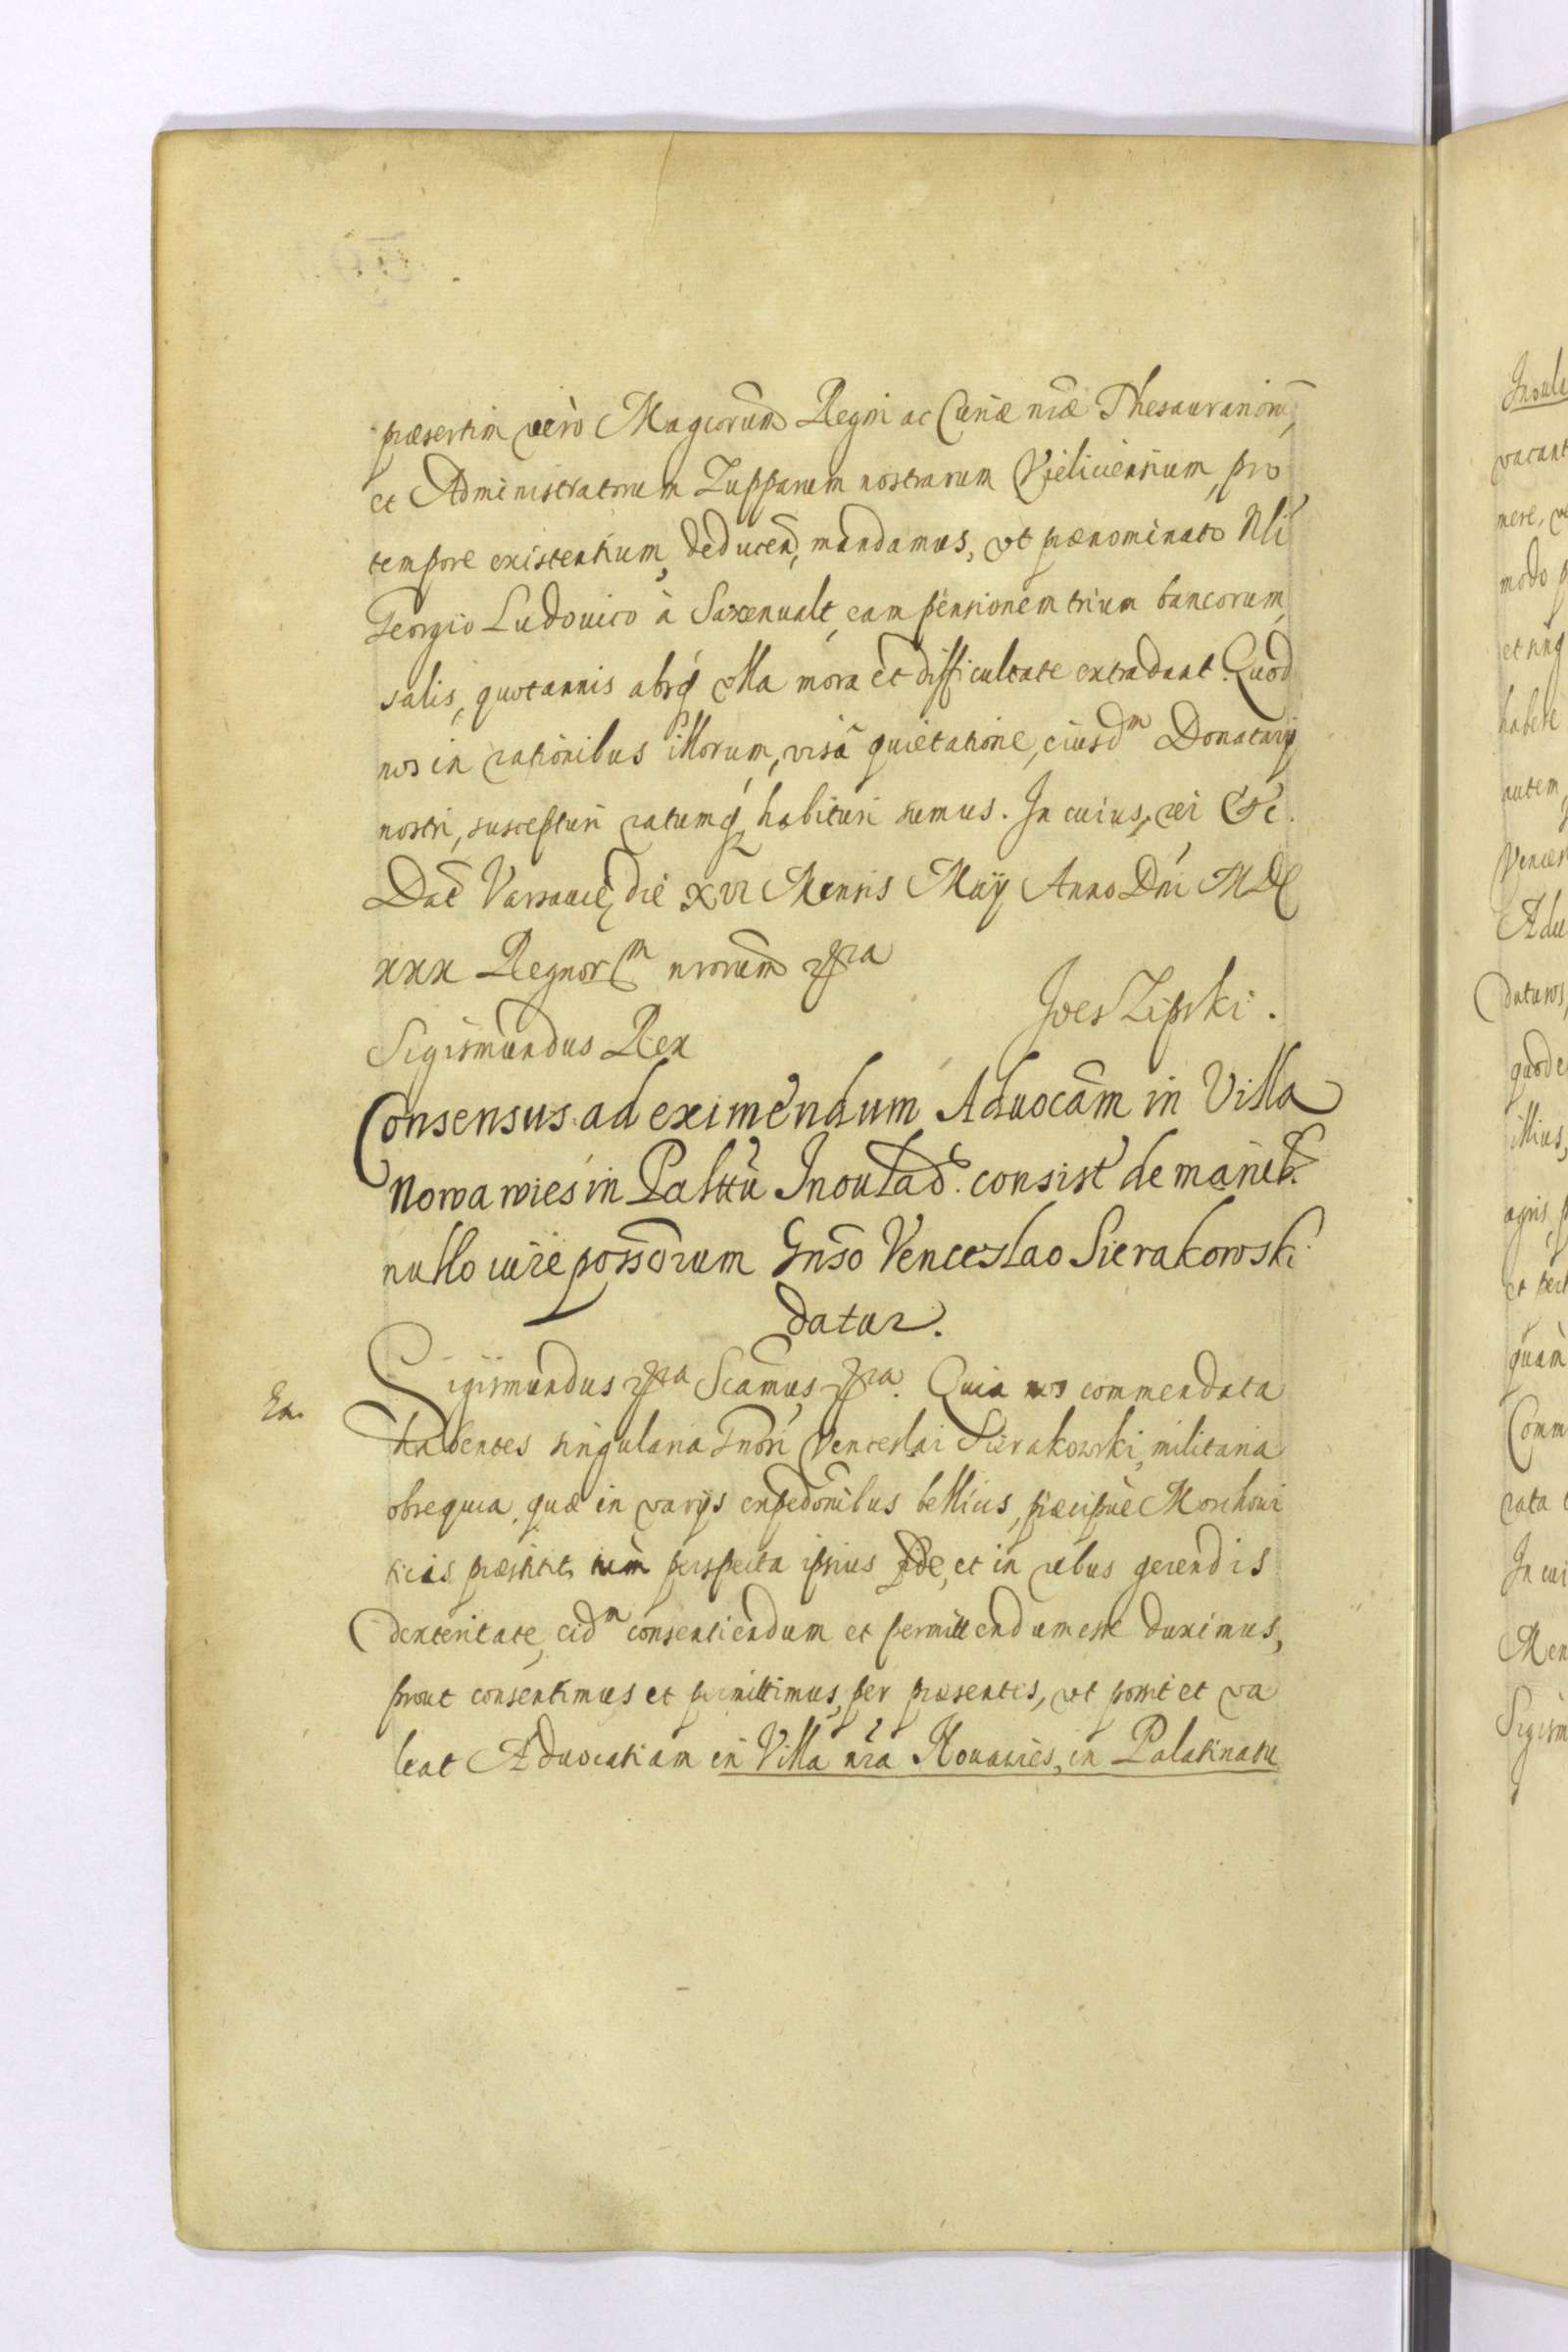 præsertim verò Magcorum Regni ac Curiæ nræ Thesaurariorum,
et Administratorum Zupparum nostrarum Vieliciensium, pro
tempore existentium, deducen, mandamus, vt prænominato Nli
Georgio Ludouico à Saxenualt, eam pensionem trium bancorum
salis, quotannis absq vlla mora et difficultate extradant. Quod
nos in rationibus illorum, visâ quietatione, eiusdm Donatarij
nostri, suscepturi ratumq habituri sumus. In cuius rei &c.
Dat Varsauiæ, die XVI Mensis Maij Anno Dni MDC
xxx Regnorm nrorum
Sigismundus Rex
Joes Lipski.
Consensus ad eximendum Aduocam in Villa
Nowawies in Palttu Inoulad. consist de manib.
nullo iure possorum Gnso Venceslao Sierakowski
datur.
Sigismundus Scamus Quia nos commendata
En.
habentes singularia Gnosi Venceslai Sierakowski, militaria
obsequia, quæ in varijs expedonibus bellicis, præcipuè Moschoui
ticis præstitit, perspecta ipsius fide, et in rebus gerendis
dexteritate, eidm consentiendum et permittendum esse duximus,
prout consentimus et permittimus, per præsentes, vt possit et va
leat Aduocatiam in Villa nra Nouawies, in Palatinatu
Inoula
vacant
mere, ve
modo p
et sing
habere
autem
Vences
Adu
daturos,
quod e
illius,
agris, p
et pert
quàm
Comm
rata e
In cui
Men
Sigism